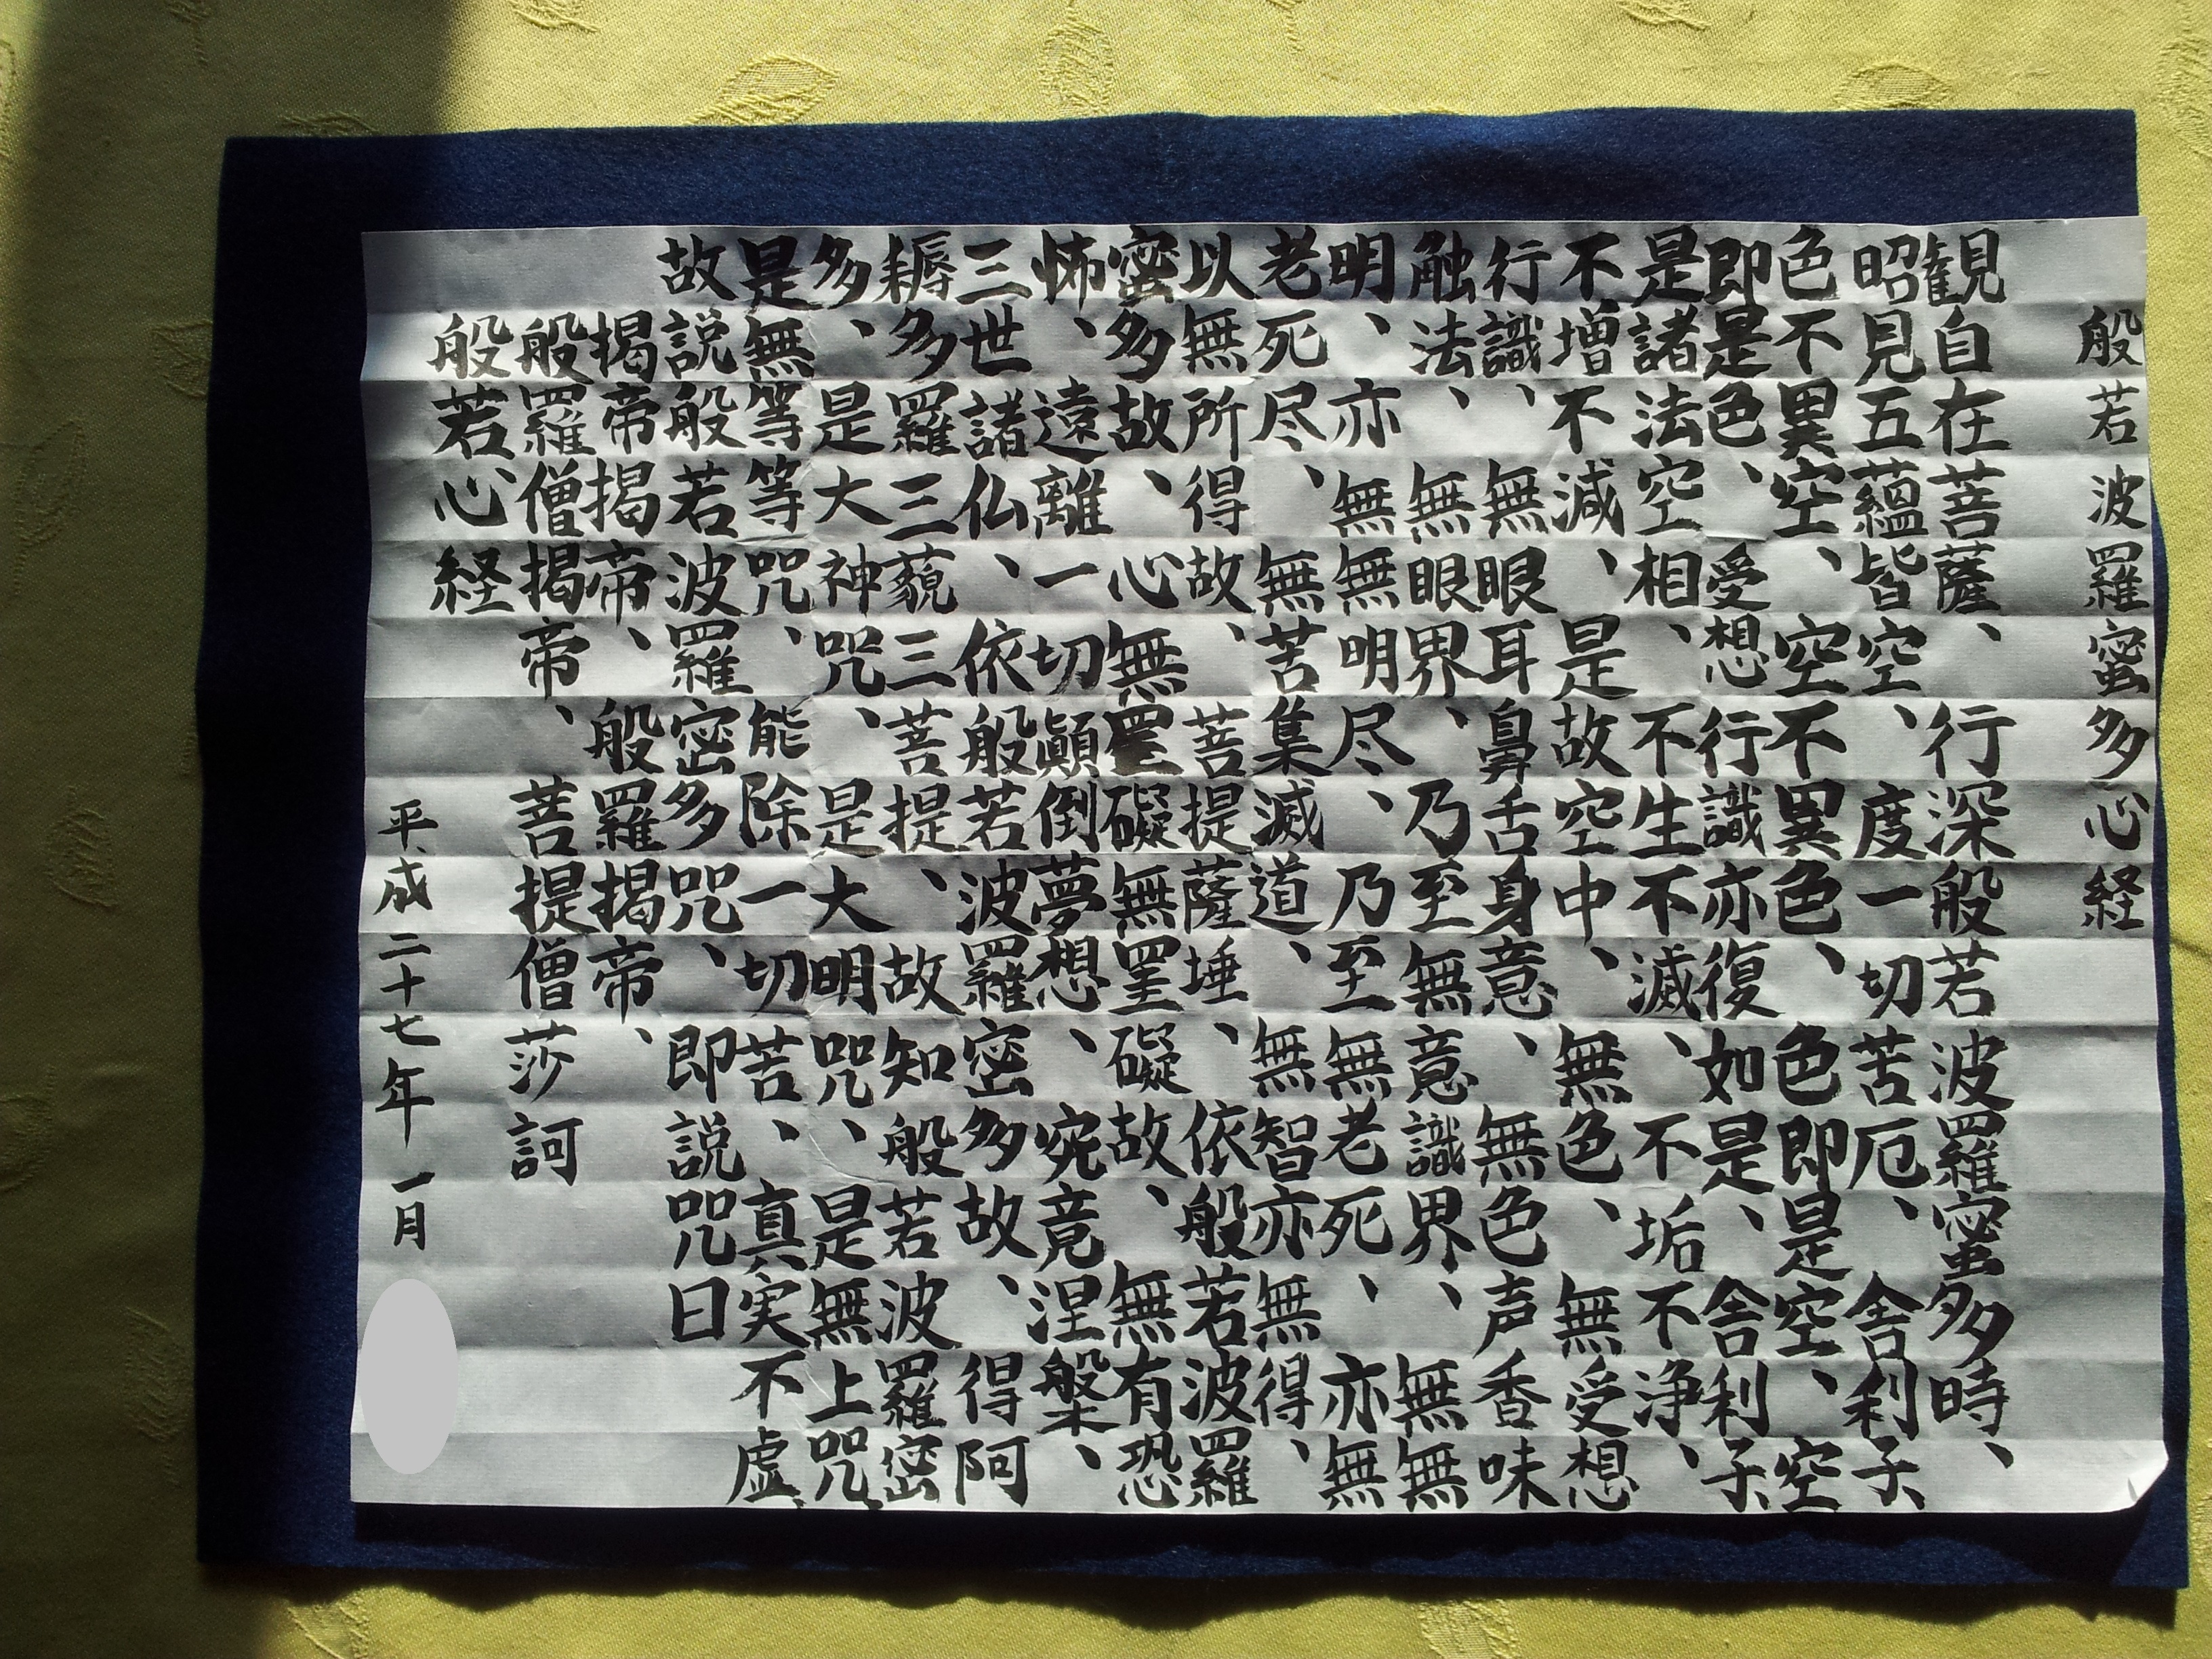 般若波羅蜜多心経
観自在菩薩、行深般若波羅蜜多時、
昭見五蘊皆空、度一切苦厄、舎利子
色不異空、空不異色、色即是空、空
即是色、受想行識亦復如是、舎利子
是諸法空相、不生不滅、不垢不浄、
不増不減、是故空中、無色、無受想
行識、無眼耳鼻舌身意、無色声香味
触法、無眼界、乃至無意識界、無無
明、亦無無明尽、乃至無老死、亦無
老死尽、無苦集滅道、無智亦無得、
以無所得故、菩提薩埵、依般若波羅
蜜多故、心無罣礙無罣礙故、無有恐
怖、遠離一切顛倒夢想、究竟涅槃、
三世諸仏、依般若波羅密多故、得阿
耨多羅三藐三菩提、故知般若波羅密
多、是大神咒、是大明咒、是無上咒、
是無等等咒、能除一切苦、真実不虚、
故説般若波羅密多咒、即説咒曰
揭帝揭帝、般羅揭帝、
般羅僧揭帝、菩提僧莎訶
般若心経
平成二十七年一月